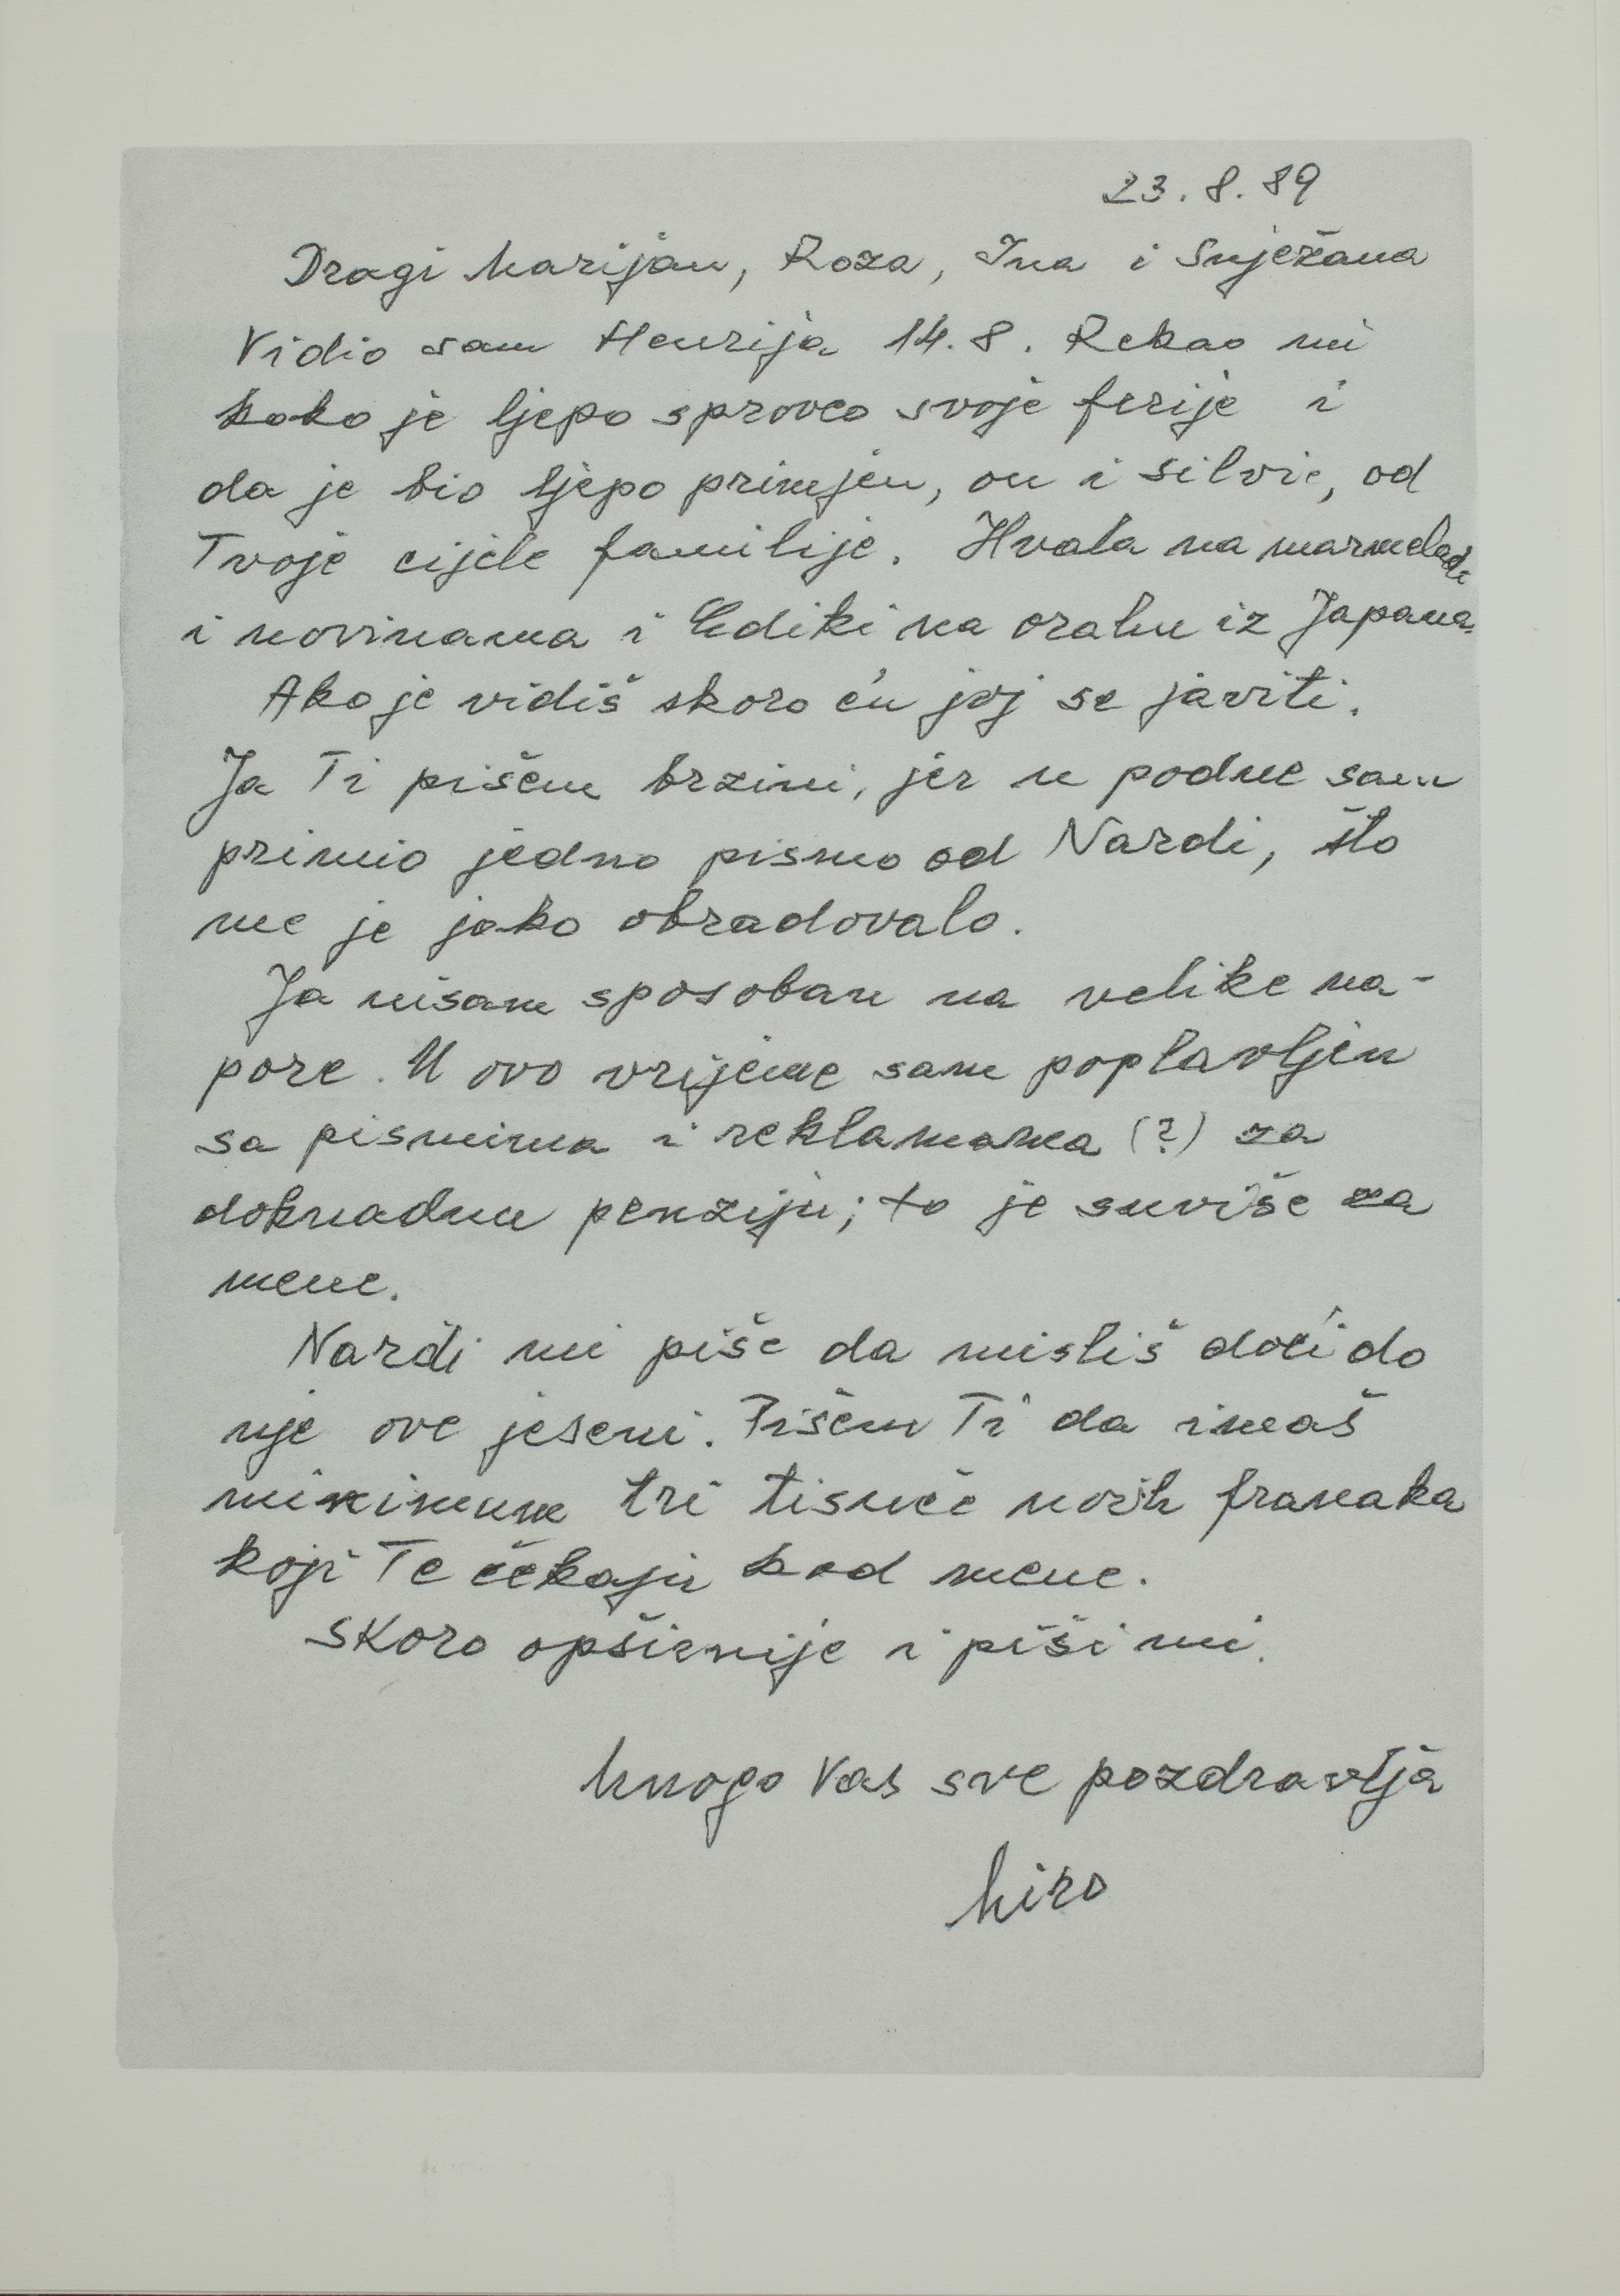 23. 8. 89
Dragi Marijan, Roza, Ina i Snježana
Vidio sam Henrija 14. 8. Rekao mi
kako je ljepo sproveo svoje ferije i
da je bio ljepo primjen, on i Silvie, od
Tvoje cijele familije. Hvala na marmeladi
i novinama i Ediki na orahu iz Japana.
Ako je vidiš skoro ću joj se javiti.
Ja Ti pišem brzini, jer u podne sam
primio jedno pismo od Nardi, što
me je jako obradovalo.
Ja nisam sposoban na velike na-
pore. U ovo vrijeme sam poplavljen
sa pismima i reklamama (?) za
doknadnu penziju; to je suviše za
mene.
Nardi mi piše da misliš doći do
nje ove jeseni. Pišem Ti da imaš
minimum tri tisuće novih franaka
koji Te čekaju kod mene.
Skoro opširnije i piši mi.
Mnogo Vas sve pozdravlja
Miro